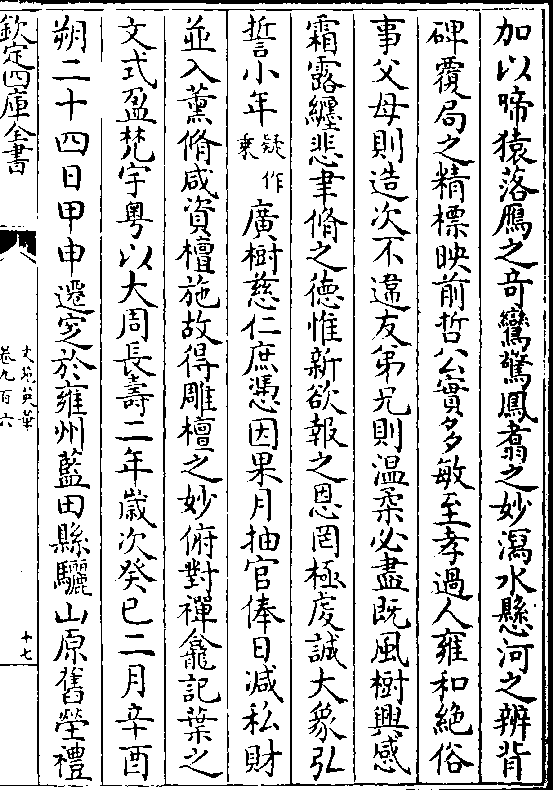 加以啼猿落鴈之竒鸞驚鳳翥之妙瀉水懸河之辨背
碑覆局之精標映前哲公實多敏至孝過人雍和絶俗
事父母則造次不違友弟兄則温柔必盡既風樹興感
霜露纒悲聿脩之德惟新欲報之恩罔極虔誠大衆弘
誓小年疑作乗廣樹慈仁庶憑因果月抽官俸日減私財
並入薫脩咸資檀施故得雕檀之妙俯對禪龕記葉之
文式盈梵宇粤以大周長壽二年歲次癸巳二月辛酉
朔二十四日甲申遷窆於雍州藍田縣驪山原舊塋禮
欽定四庫全書
文苑英華
卷九百六
十七